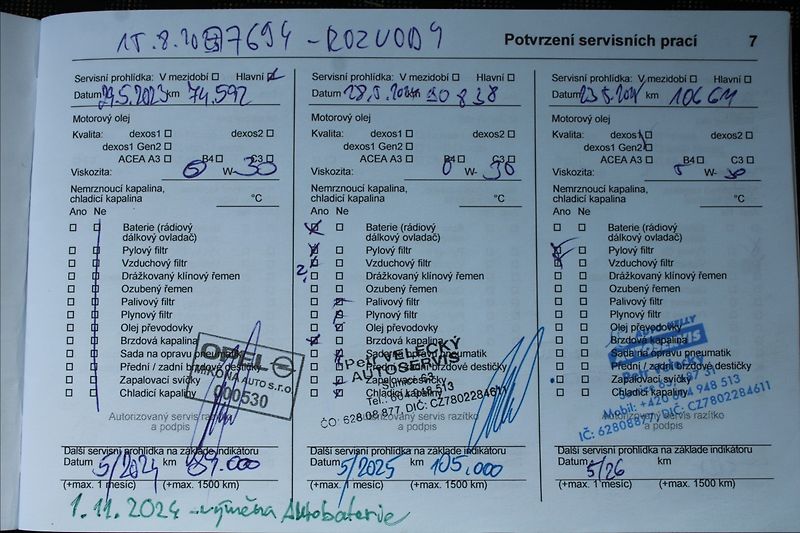 15.8.20 97694 - ROZVODY
Potvrzení servisních prací 7
Servisní prohlídka: V mezidobí Hlavní
Datum 29.5.2023 km 74.592
Motorový olej
Kvalita: dexos1 dexos2
dexos1 Gen2
ACEA A3 B4 C3
Viskozita: 0 W- 30
Nemrznoucí kapalina,
chladicí kapalina °C
Ano Ne
Baterie (rádiový
dálkový ovladač)
Pylový filtr
Vzduchový filtr
Drážkovaný klínový řemen
Ozubený řemen
Palivový filtr
Plynový filtr
Olej převodovky
Brzdová kapalina
Sada na opravu pneumatik
Přední / zadní brzdové destičky
Zapalovací svíčky
Chladicí kapaliny
OPEL
AUTO s.r.o.
000530
Autorizovaný servis razítko
a podpis
Další servisní prohlídka na základě indikátoru
Datum 5/2024 km 89.000
(+max. 1 měsíc) (+max. 1500 km)
Servisní prohlídka: V mezidobí Hlavní
Datum 28.5.2024 km 90838
Motorový olej
Kvalita: dexos1 dexos2
dexos1 Gen2
ACEA A3 B4 C3
Viskozita: 0 W- 30
Nemrznoucí kapalina,
chladicí kapalina °C
Ano Ne
Baterie (rádiový
dálkový ovladač)
Pylový filtr
Vzduchový filtr
Drážkovaný klínový řemen
Ozubený řemen
Palivový filtr
Plynový filtr
Olej převodovky
Brzdová kapalina
Sada na opravu pneumatik
Přední / zadní brzdové destičky
Zapalovací svíčky
Chladicí kapaliny
Petr VELECKÝ
AUTOSERVIS
Tel.: 604 948 513
IČO: 628 08 877, DIČ: CZ7802284611
Autorizovaný servis razítko
a podpis
Další servisní prohlídka na základě indikátoru
Datum 5/2025 km 105.000
(+max. 1 měsíc) (+max. 1500 km)
Servisní prohlídka: V mezidobí Hlavní
Datum km 10661
Motorový olej
Kvalita: dexos1 dexos2
dexos1 Gen2
ACEA A3 B4 C3
Viskozita: 5 W- 30
Nemrznoucí kapalina,
chladicí kapalina °C
Ano Ne
Baterie (rádiový
dálkový ovladač)
Pylový filtr
Vzduchový filtr
Drážkovaný klínový řemen
Ozubený řemen
Palivový filtr
Plynový filtr
Olej převodovky
Brzdová kapalina
Sada na opravu pneumatik
Přední / zadní brzdové destičky
Zapalovací svíčky
Chladicí kapaliny
Mobil: +420 604 948 513
IČ: 62808877, DIČ: CZ7802284611
Autorizovaný servis razítko
a podpis
Další servisní prohlídka na základě indikátoru
Datum 5/26 km
(+max. 1 měsíc) (+max. 1500 km)
1.11.2024 - výměna Autobaterie